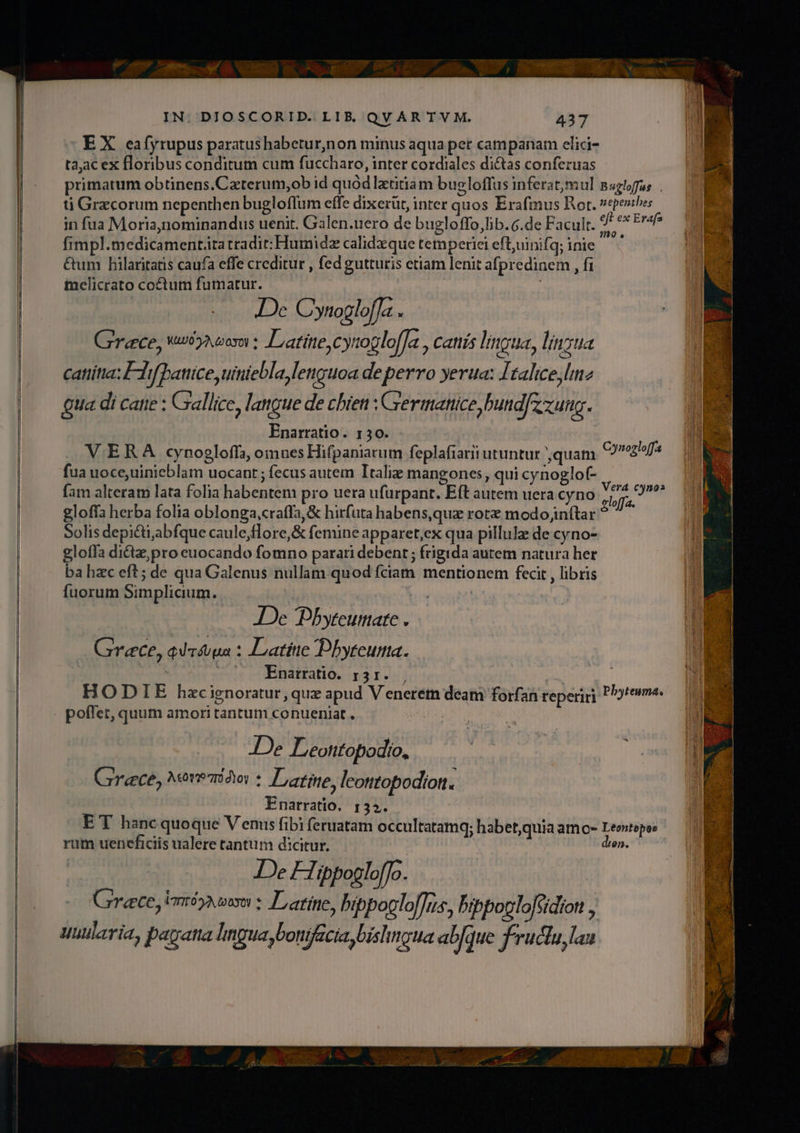 IN DIOSCORID. LIB. QVARTVM. 437
EX eaſyrupus paratus habetur, non minus aqua per campanam elici-
ta, ac ex floribus conditum cum ſuccharo, inter cordiales dictas conſeruas
primatum obtinens. Cæterum, ob id quòd lætitiam bugloſſus inferat, mul
Bugloſſus
ti Græcorum nepenthen bugloſſum eſſe dixerũt, inter quos Eraſmus Rot.
nepenthes
in ſua Moria, nominandus uenit. Galen. uero de bugloſſo, lib. 6. de Facult.
eſt ex Eraſ
mo.
ſimpl. medicament. ita tradit: Humidæ calidæque temperiei eſt, uiniſq; inie
ctum hilaritatis cauſa eſſe creditur, ſed gutturis etiam lenit aſpredinem, ſi
melicrato coctum ſumatur.
De Cynogloſſa.
Græce, κυνόγλωσσοι: Latine, cynogloſſa, canis lingua, lingua
canina: Hiſpanice, uiniebla, lenguoa de perro yerua: Italice, line
gua di cane: Gallice, langue de chien: Germanice, hundſzzung.
Enarratio. 130.
VERA cynogloſſa, omnes Hiſpaniarum ſeplaſiarii utuntur, quam
Cynogloſſa
ſua uoce, uinieblam uocant; ſecus autem Italiæ mangones, qui cynogloſ-
ſam alteram lata folia habentem pro uera uſurpant. Eſt autem uera cyno
Vera cyno
gloſſa.
gloſſa herba folia oblonga, craſſa, & hirſuta habens, quæ rotæ modo, inſtar
Solis depicti, abſque caule, flore, & ſemine apparet, ex qua pillulæ de cyno-
gloſſa dictæ, pro euocando ſomno parari debent; frigida autem natura her
ba hæc eſt; de qua Galenus nullam quod ſciam mentionem fecit, libris
ſuorum Simplicium.
De Phyteumate.
Græce, φύτευμα: Latine Phyteuma.
Enarratio. 131.
HODIE hæc ignoratur, quæ apud Venerem deam forſan reperiri
Phyteuma.
poſſet, quum amori tantum conueniat.
De Leontopodio,
Græce, λεοντοπόδιον: Latine, leontopodion.
Enarratio. 132.
ET hanc quoque Venus ſibi ſeruatam occultatamq; habet, quia amo-
Leontopoe
dion.
rum ueneficiis ualere tantum dicitur.
De Hippogloſſo.
Græce, ἱππόγλωσσοι: Latine, hippogloſſus, hippogloſsidion,
uuularia, pagana lingua, bonifacia, biſlingua abſque fructu, lau